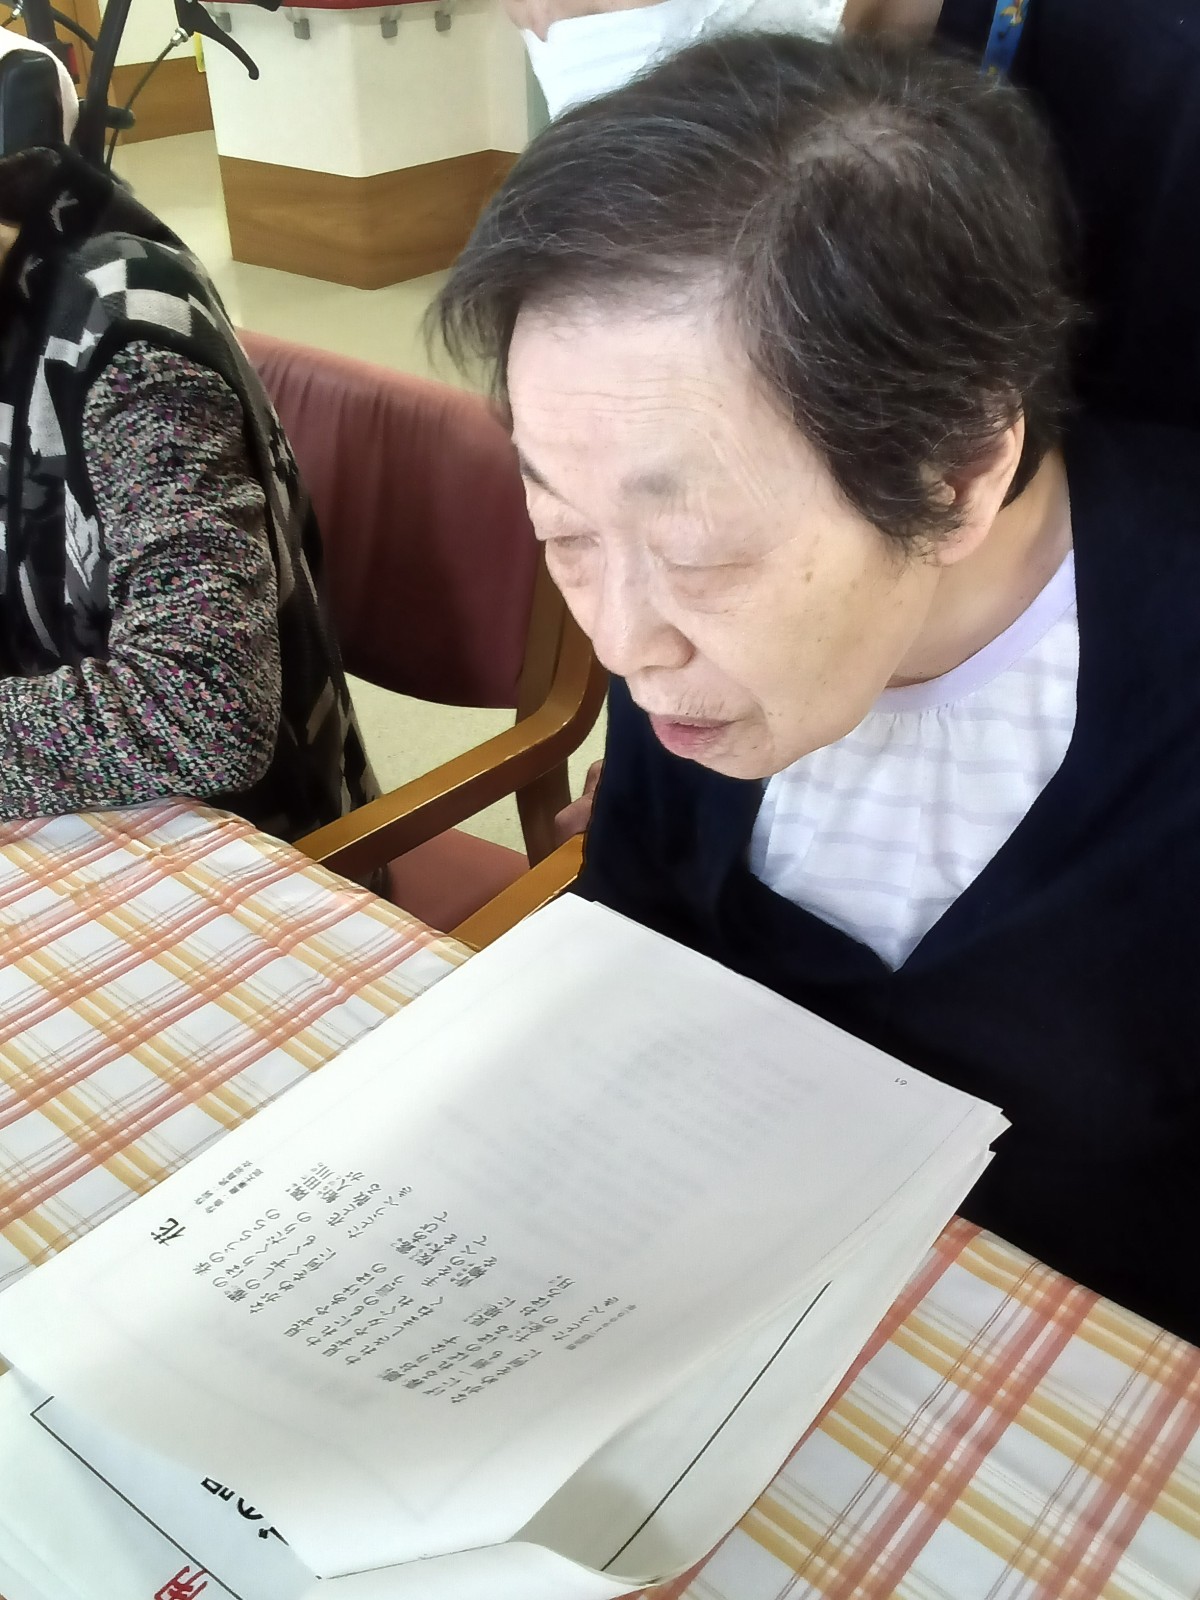 花
武島羽衣・作詞
滝廉太郎・作曲
春のうららの 隅田川
のぼりくだりの 船人が
櫂のしずくも 花と散る
ながめを何に たとうべき
見ずやあけぼの 露浴びて
われにもの言う 桜木を
見ずや夕ぐれ 手をのべて
われさしまねく 青柳を
錦おりなす 長堤に
くるればのぼる おぼろ月
げに一刻も 千金の
ながめを何に たとうべき
19